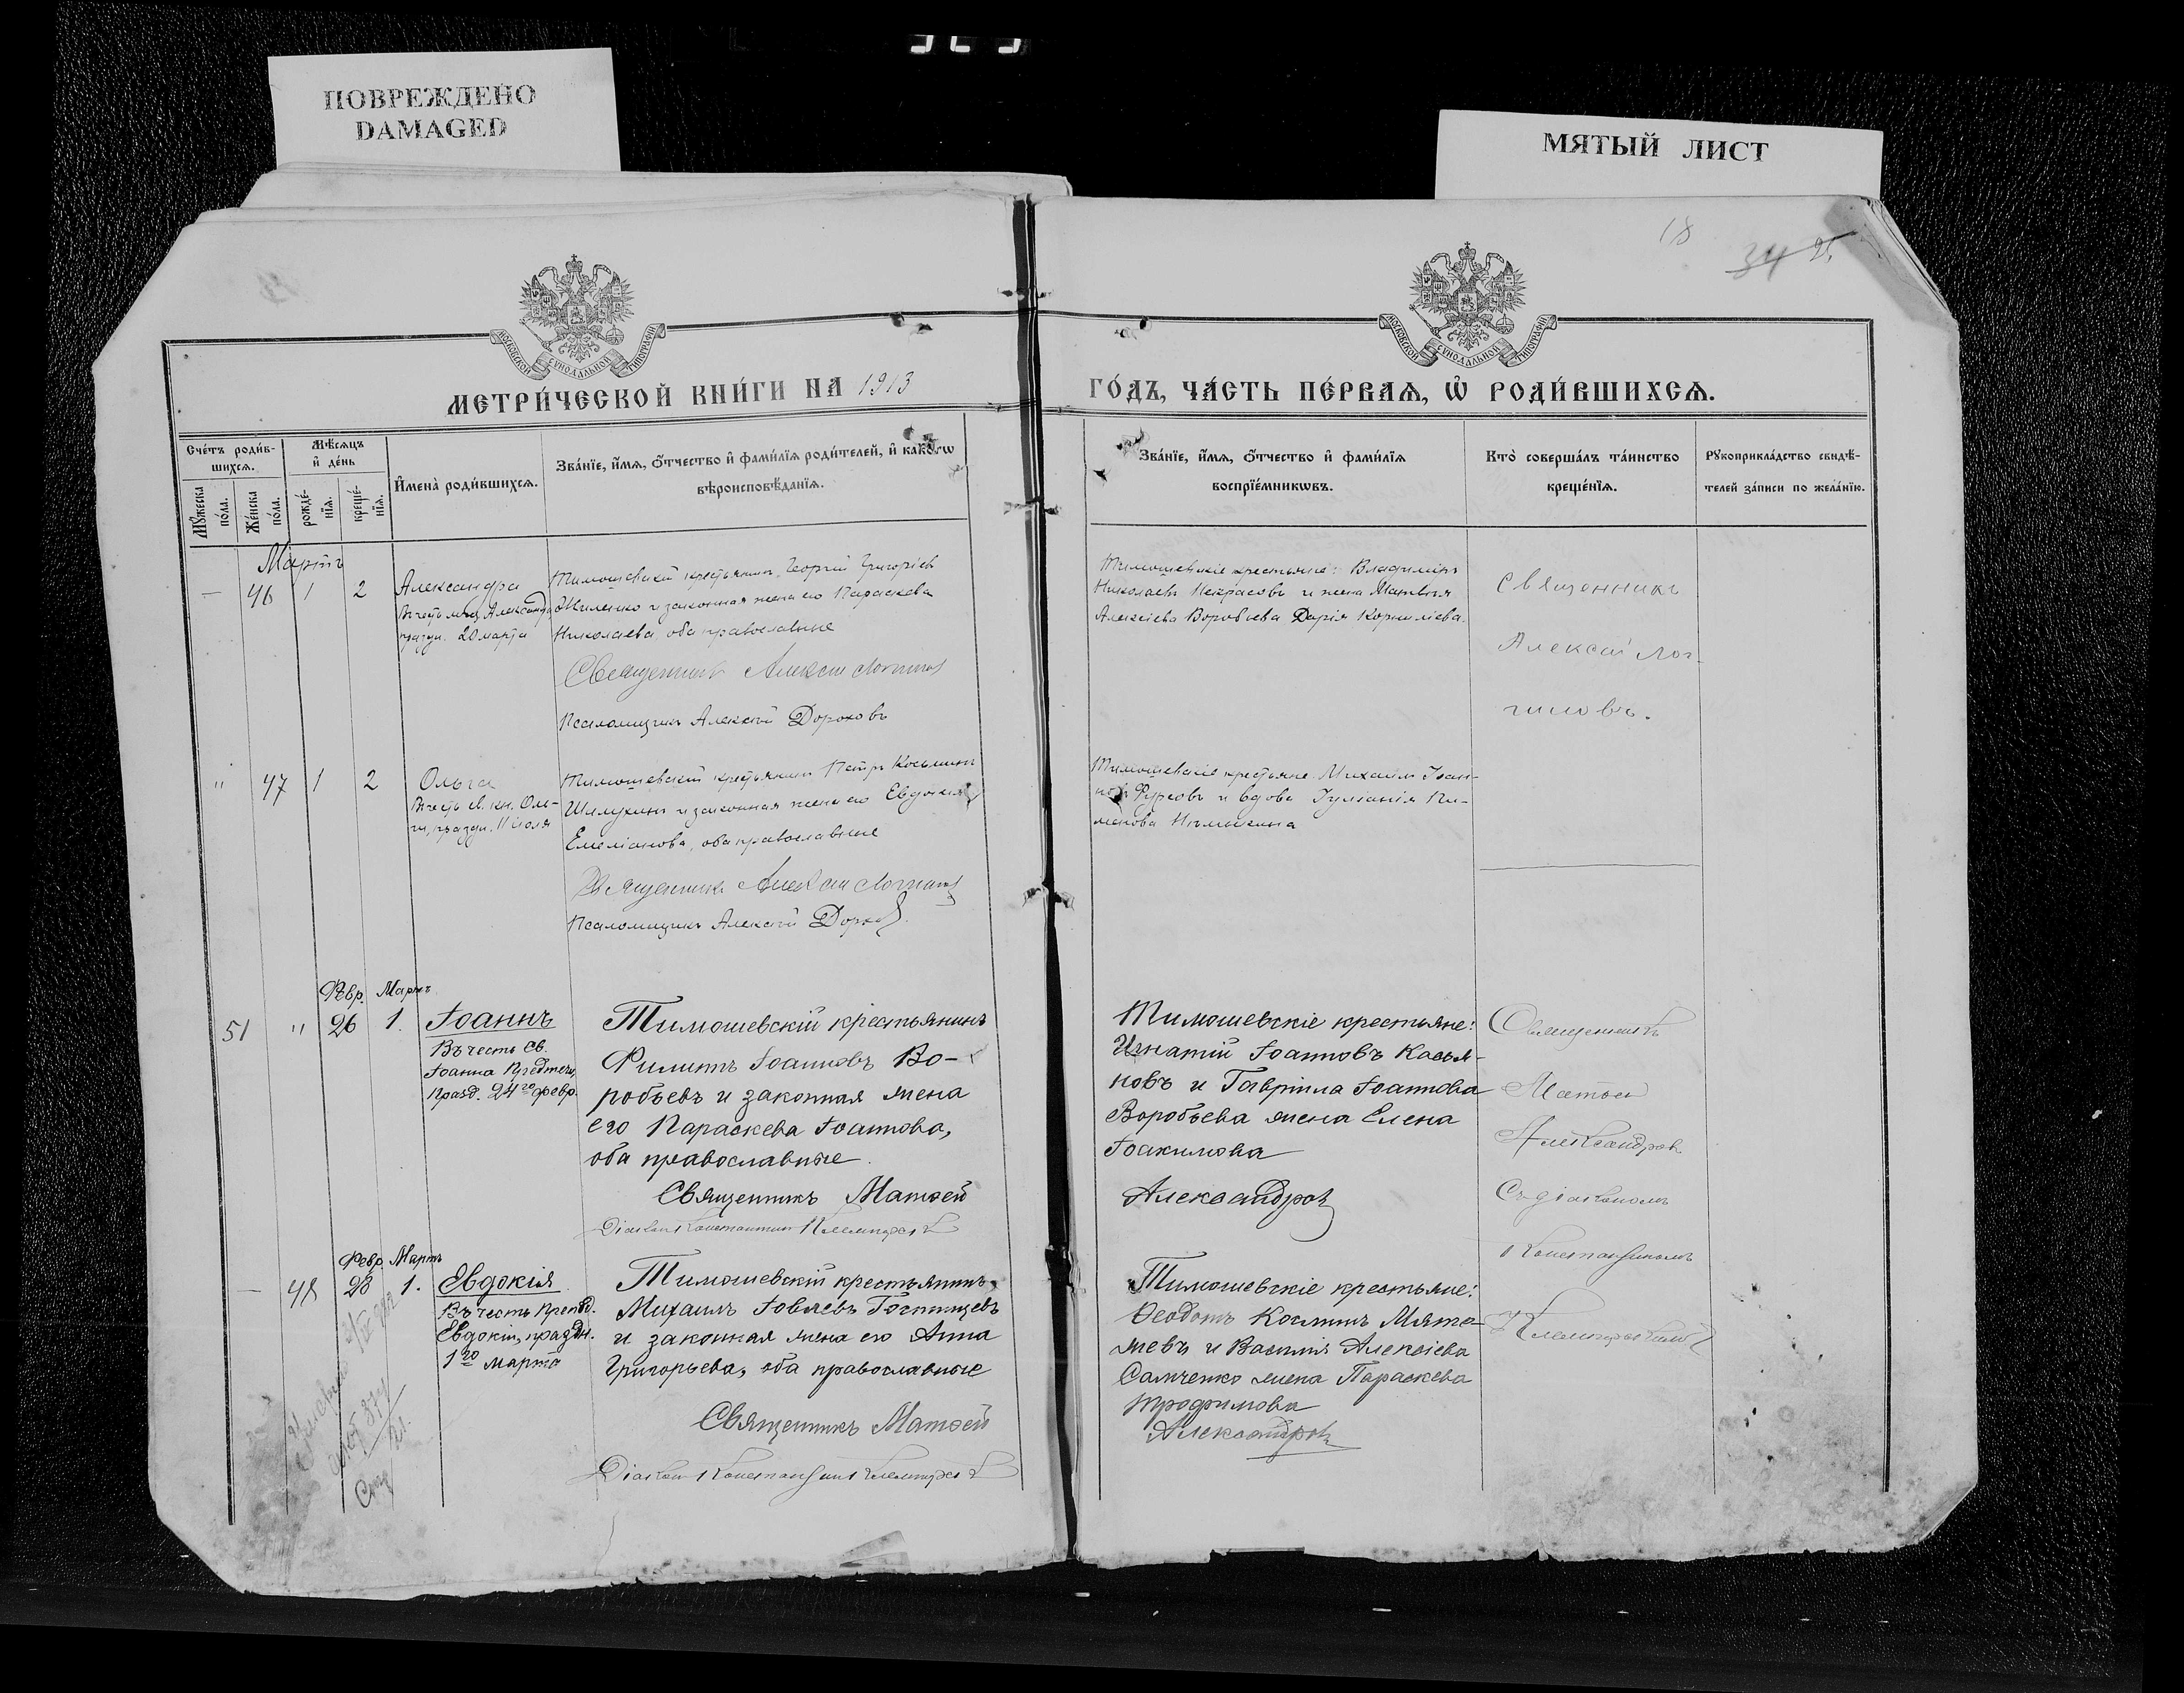 ПОВРЕЖДЕНО
DAMAGED
МЯТЫЙ ЛИСТ
18
34
МОСКОВСКОЙ СУНОДАЛЬНОЙ ТИПОГРАФІИ
МОСКОВСКОЙ СУНОДАЛЬНОЙ ТИПОГРАФІИ
МЕТРИ́ЧЕСКОЙ КНИ́ГИ НА 1913
ГО́ДЪ, ЧА́СТЬ ПЕ́РВАѦ, Ѡ҆ РОДИ́ВШИХСѦ.
Сче́тъ роди́в-
шихсѧ.
Мѣ́сѧцъ
и҆ де́нь
Мꙋ́жеска по́ла.
Же́нска по́ла.
рожде́-нїѧ.
креще́-нїѧ.
И҆мена̀ роди́вшихсѧ.
Зва́нїе, и҆́мѧ, ѻ҆́тчество и҆ фами́лїѧ роди́телей, и҆ како́гѡ
вѣроисповѣ́данїѧ.
Зва́нїе, и҆́мѧ, ѻ҆́тчество и҆ фами́лїѧ
воспрїе́мникѡвъ.
Кто̀ соверша́лъ та́инство
креще́нїѧ.
Рꙋкоприкла́дство свидѣ́-
телей за́писи по жела́нїю.
Мартъ
— 46 1 2
Александра
Въ честь мчц. Александры,
праздн. 20 марта
Тимошевскій крестьянинъ Георгій Григоріев
Жиленко и законная жена его Параскева
Николаева, оба православные
Священникъ Алексій Логиновъ
Псаломщикъ Алексій Дороховъ
Тимошевскіе крестьяне: Владиміръ
Николаевъ Некрасовъ и жена Матвѣя
Алексіева Воробьева Дарія Корниліева.
Священникъ
Алексій Лог-
гиновъ.
" 47 1 2
Ольга
Въ честь св. кн. Оль-
ги, праздн. 11 іюля
Тимошевскій крестьянинъ Петръ Косьминъ
и законная жена его Евдокія
Емеліанова, оба православные
Священникъ Алексій Логиновъ
Псаломщикъ Алексій Дорохов.
Тимошевскіе крестьяне: Михаилъ Іоан-
новъ Фурсовъ и вдова Іуліанія Пи-
менова
Февр. Мартъ
51 " 26 1.
Іоаннъ
Въ честь Св.
Іоанна Предтечи,
празд. 24го февр.
Тимошевскій крестьянинъ
Филиппъ Іоанновъ Во-
робьевъ и законная жена
его Параскева Іоаннова,
оба православные.
Священникъ Матѳей
Діаконъ Константинъ
Тимошевскіе крестьяне:
Игнатій Іоанновъ Касья-
новъ и Гавріила Іоаннова
Воробьева жена Елена
Іоакимова
Александров
Священникъ
Матѳей
Александров
Съ діакономъ
Константиномъ
Февр. Мартъ
— 48 28 1.
Евдокія
Въ честь Препод.
Евдокіи, праздн.
1го марта
Тимошевскій крестьянинъ
Михаилъ Іовлевъ Гостищевъ
и законная жена его Анна
Григорьева, оба православные
Священникъ Матѳей
Діаконъ Константинъ
Тимошевскіе крестьяне:
Ѳеодотъ Косминъ Мяте-
жевъ и Василія Алексіева
Самченко жена Параскева
Трофимова
Александров